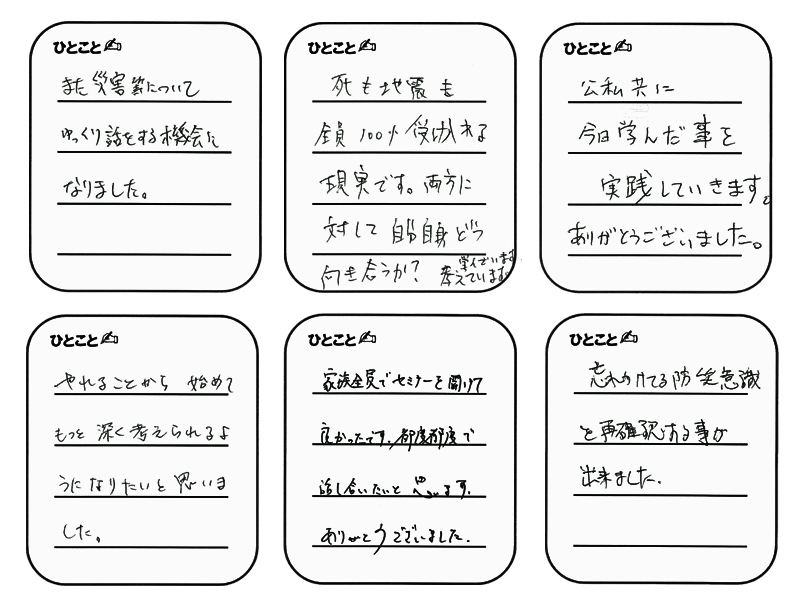 ひとこと
また災害等について
ゆっくり話をする機会に
なりました。
ひとこと
死も地震も
全員100%受け入れる
現実です。両方に
対して自分自身どう
向き合うか?
学んでいます
考えています。
ひとこと
公私共に
今日学んだ事を
実践していきます。
ありがとうございました。
ひとこと
やれることから 始めて
もっと深く考えられるよ
うになりたいと思いま
した。
ひとこと
家族全員でセミナーを聞けて
良かったです。都度都度で
話し合いたいと思います。
ありがとうございました。
ひとこと
忘れかけてる防災意識
を再確認する事が
出来ました。